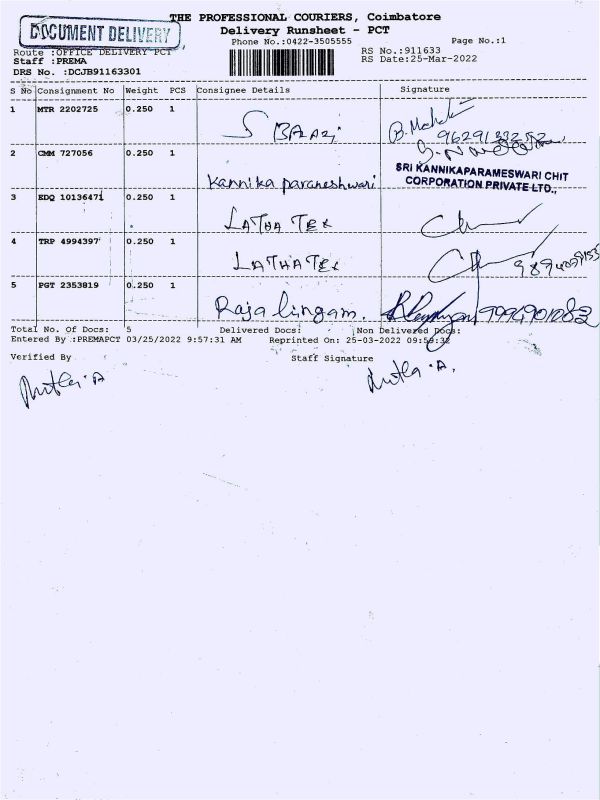 DOCUMENT DELIVERY
THE PROFESSIONAL COURIERS, Coimbatore
Delivery Runsheet - PCT
Phone No.:0422-3505555 Page No.:1
Route :OFFICE DELIVERY PCT RS No.:911633
Staff :PREMA RS Date:25-Mar-2022
DRS No. :DCJB91163301
S No Consignment No Weight PCS Consignee Details Signature
1 MTR 2202725 0.250 1 S BALAJI
2 CMM 727056 0.250 1 Kannika parameshwari
SRI KANNIKAPARAMESWARI CHIT
CORPORATION PRIVATE LTD.,
3 EDQ 10136471 0.250 1 LATHA TEX
4 TRP 4994397 0.250 1 LATHA TEX
5 PGT 2353819 0.250 1 Raja lingam.
Total No. Of Docs: 5 Delivered Docs: Non Delivered Docs:
Entered By :PREMAPCT 03/25/2022 9:57:31 AM Reprinted On: 25-03-2022 09:59:32
Verified By Staff Signature